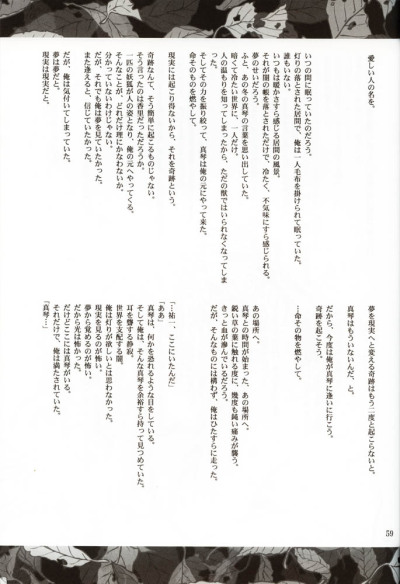 愛しい人の名を。
いつの間に眠っていたのだろう。
灯りの落とされた居間で、俺は一人毛布を掛けられて眠っていた。
誰もいない。
いつもは暖かさすら感じる居間の風景。
それが闇の帳を落とされただけで、冷たく、不気味にすら感じられる。
夢のせいだろう。
ふと、あの冬の真琴の言葉を思い出していた。
暗くて冷たい世界に、一人だけ。
人の温もりを知ってしまったから、ただの獣ではいられなくなってしま
った。
そしてその力を振り絞って、真琴は俺の元にやって来た。
命そのものを燃やして。
現実には起こり得ないから、それを奇跡という。
奇跡なんて、そう簡単に起こるものじゃない。
そう言ったのは香里だっただろうか。
一匹の妖狐が人の姿となり、俺の元へやってくる。
そんなことが、どれだけ理にかなわないか、
分かっていないわけじゃない。
だが、それでも俺は夢を見ていたかった。
また逢えると、信じていたかった。
だが、俺は気付いてしまっていた。
夢は夢だと。
現実は現実だと。
夢を現実へと変える奇跡はもう二度と起こらないと。
真琴はもういないんだ、と。
だから、今度は俺が真琴に逢いに行こう。
奇跡を起こそう。
…命その物を燃やして。
あの場所へ。
真琴との時間が始まった、あの場所へ。
鋭い草の葉に触れる度に、幾度も鈍い痛みが襲う。
きっと血が滲んでいるだろう。
だが、そんなものには構わず、俺はひたすらに走った。
「…祐一、ここにいたんだ」
「ああ」
真琴は、何かを恐れるような目をしている。
そして俺は、そんな真琴を余裕すら持って見つめていた。
耳を聾する静寂。
世界を支配する闇。
俺は灯りが欲しいとは思わなかった。
現実を見るのが怖い。
夢から覚めるのが怖い。
だから光は怖かった。
だけどここには真琴がいる。
それだけで、俺は満たされていた。
「真琴…」
59